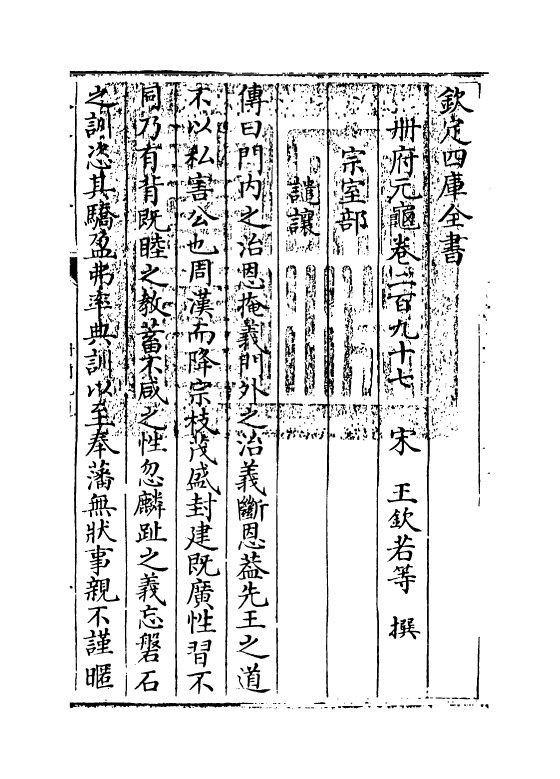 欽定四庫全書
冊府元龜卷二百九十七　宋　王欽若等　撰
宗室部
譴讓
傳曰門内之治恩掩義門外之治義斷恩蓋先王之道
不以私害公也周漢而降宗枝茂盛封建既廣性習不
同乃有背既睦之教蓄不咸之性忽麟趾之義忘磐石
之訓恣其驕盈弗率典訓以至奉藩無狀事親不謹暱